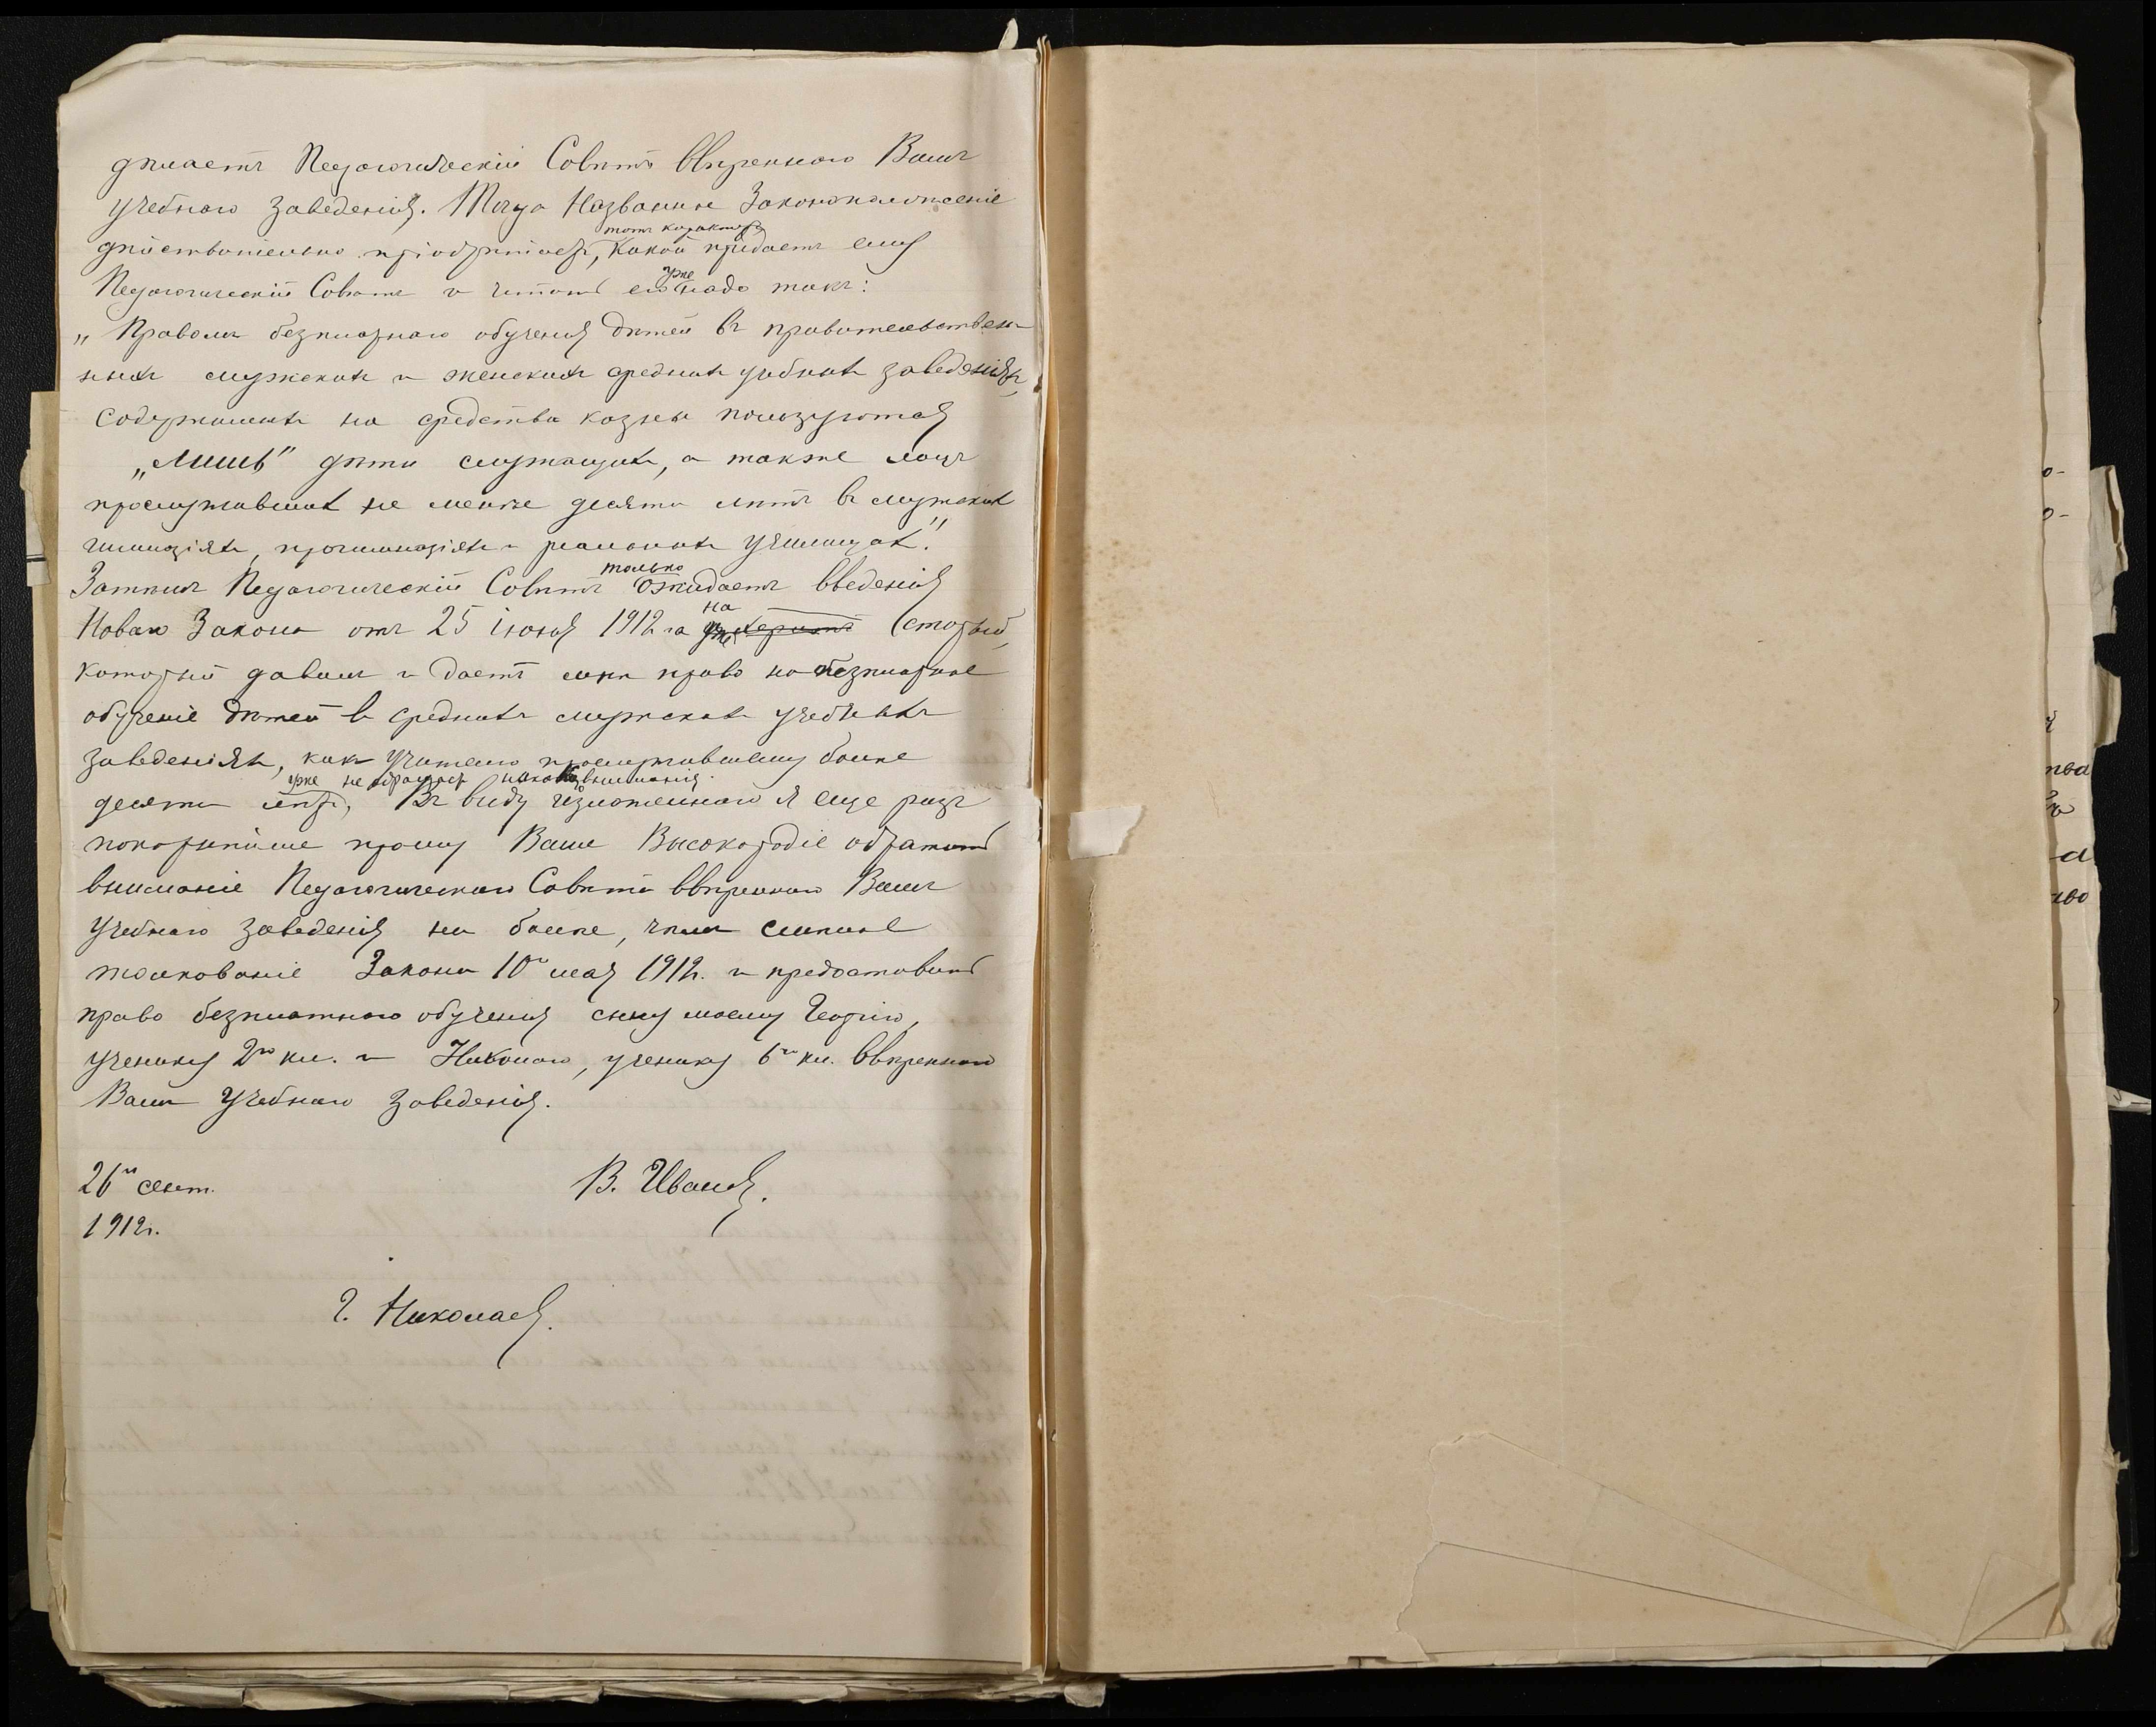 дѣлаетъ Педагогическій Совѣтъ ввѣреннаго Вамъ
учебнаго заведенія. Тогда названное Законоположеніе
дѣйствительно пріобрѣтаетъ, тотъ характеръ какой придаетъ ему
Педагогическій Совѣтъ и читать его уже надо такъ:
„Правомъ безплатнаго обученія дѣтей въ правительствен-
ныхъ мужскихъ и женскихъ среднихъ учебныхъ заведеніяхъ,
содержимыхъ на средства казны пользуются
„лишь" дѣти служащихъ, а также лицъ
прослужившихъ не менѣе десяти лѣтъ въ мужскихъ
гимназіяхъ, прогимназіяхъ и реальныхъ училищахъ."
Затѣмъ Педагогическій Совѣтъ только ожидаетъ введенія
Новаго Закона отъ 25 іюня 1912 га на старый,
который давалъ и даетъ мнѣ право на безплатное
обученіе дѣтей въ среднихъ мужскихъ учебныхъ
заведеніяхъ, какъ учителю прослужившему болѣе
десяти лѣтъ, уже не обращаетъ никакого вниманія. Въ виду изложеннаго я еще разъ
покорнѣйше прошу Ваше Высокородіе обратить
вниманіе Педагогическаго Совѣта ввѣреннаго Вамъ
учебнаго заведенія на болѣе, чѣмъ смѣлое
толкованіе Закона 10го мая 1912г. и предоставить
право безплатнаго обученія сыну моему Георгію,
ученику 2го кл. и Николаю, ученику 6го кл. ввѣреннаго
Вамъ учебнаго заведенія.
26го сент.
В. Ивановъ.
1912г.
г. Николаевъ.